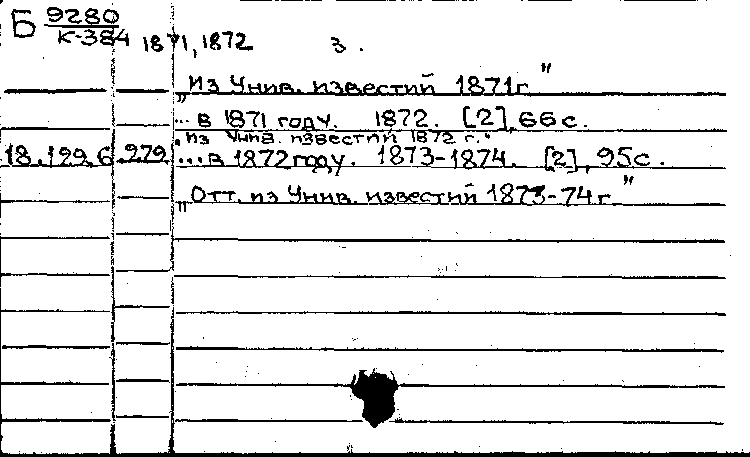 Б 9280
К-384 1871, 1872 3.
„Из Унив. известий 1871г"
... в 1871 году. 1872. [2], 66с.
„Из Унив. известий 1872 г."
18.129.6 979 ... в 1872 году. 1873-1874. [2], 95с.
„Отт. из Унив. известий 1873-74г."